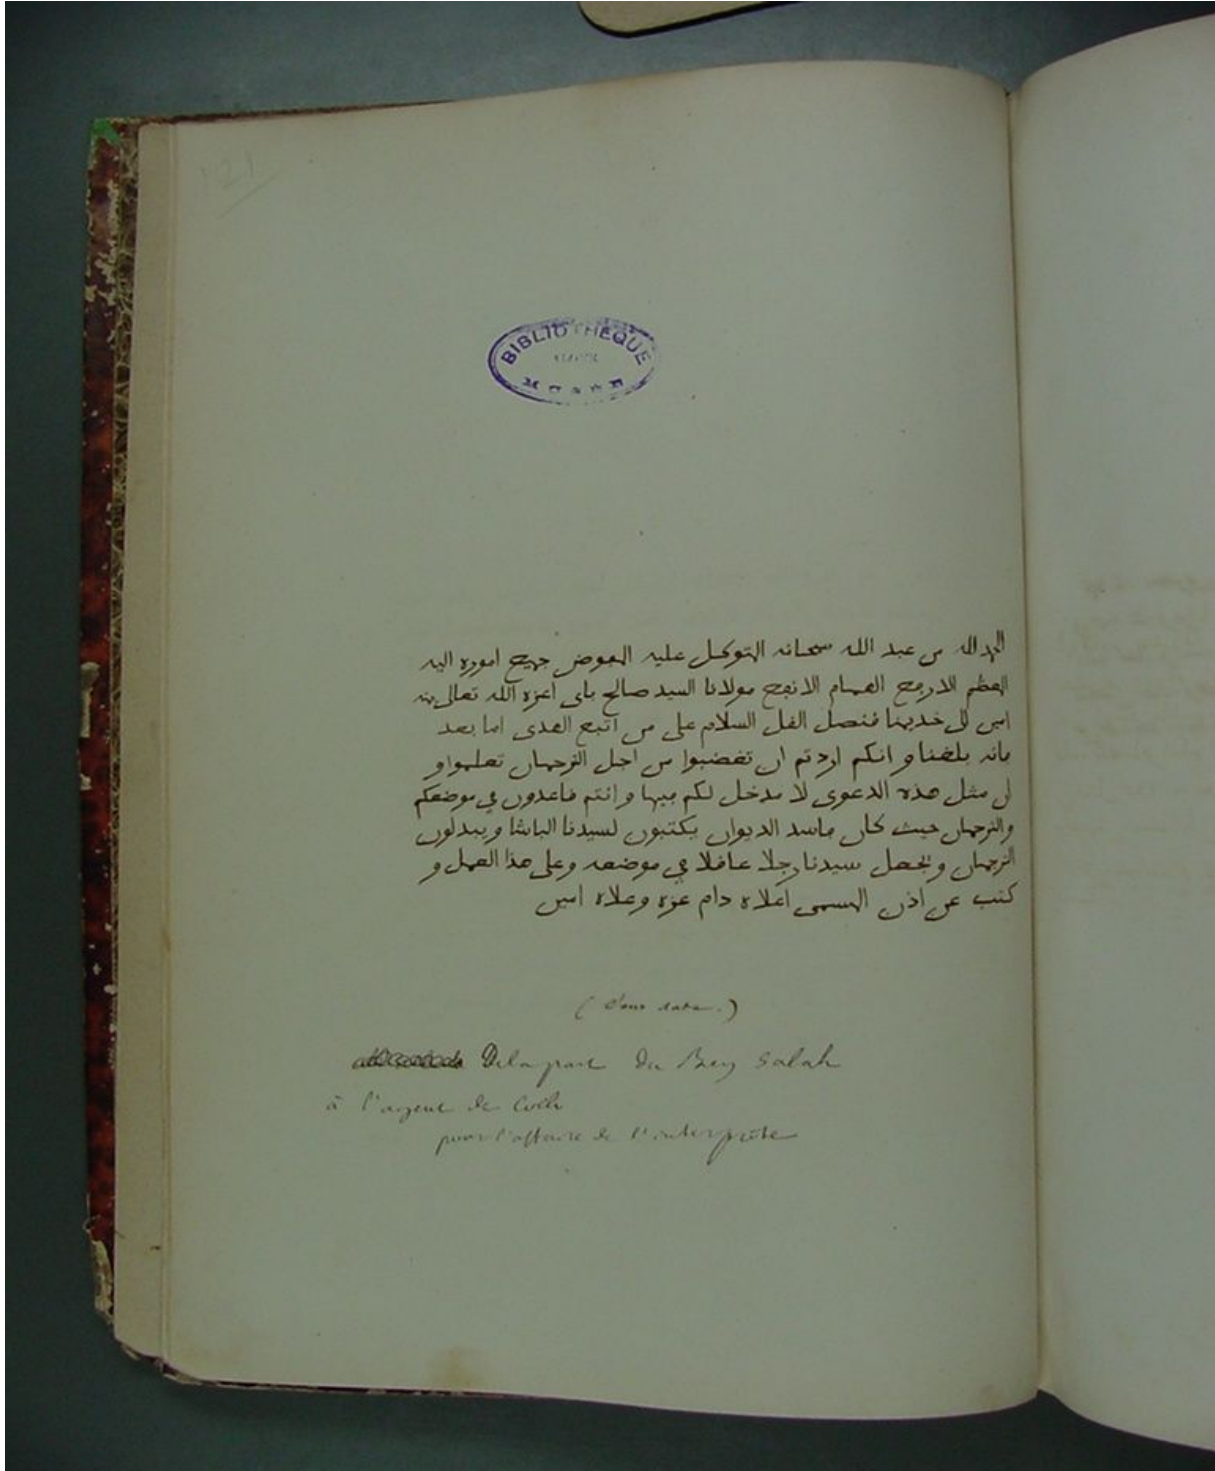 121
BIBLIOTHEQUE
الحمد لله من عبد الله سبحانه المتوكل عليه المفوض جميع اموره اليه
المعظم الارفع الهمام الانفع مولانا السيد صالح باي اعزه الله تعالى بمنه
امين الى خديمنا فنصل القل السلام على من اتبع الهدى اما بعد
فانه بلغنا و انكم اردتم ان تغضبوا من اجل الترجمان تعلموا و
ان مثل هذه الدعوى لا مدخل لكم فيها و انتم قاعدون في موضعكم
والترجمان حيث كان فاسد الديوان يكتبون لسيدنا الباشا و يبدلون
الترجمان و يجعل سيدنا رجلا عاقلا في موضعه وعلى هذا العمل و
كتب عن اذن المسمى اعلاه دام عزه وعلاه امين
(Sans date.)
De la part du Bey Salah
à l'agent de Collo
pour l'affaire de l'interprète